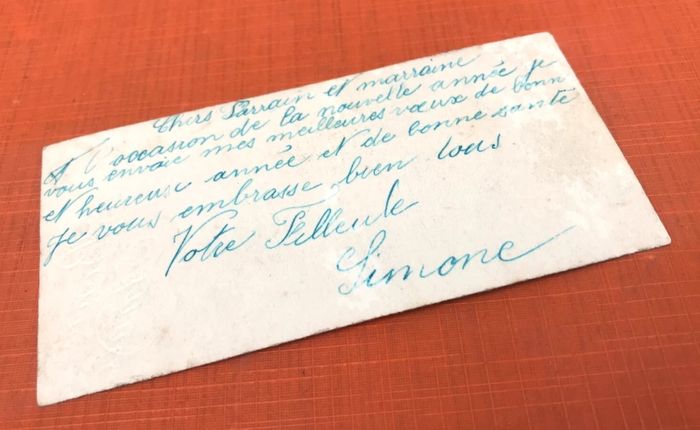 Chers Parrain et marraine
A l'occasion de la nouvelle année je
vous envoie mes meilleures vœux de bonn
et heureuse année et de bonne santé
je vous embrasse bien tous
Votre Filleule
Simone